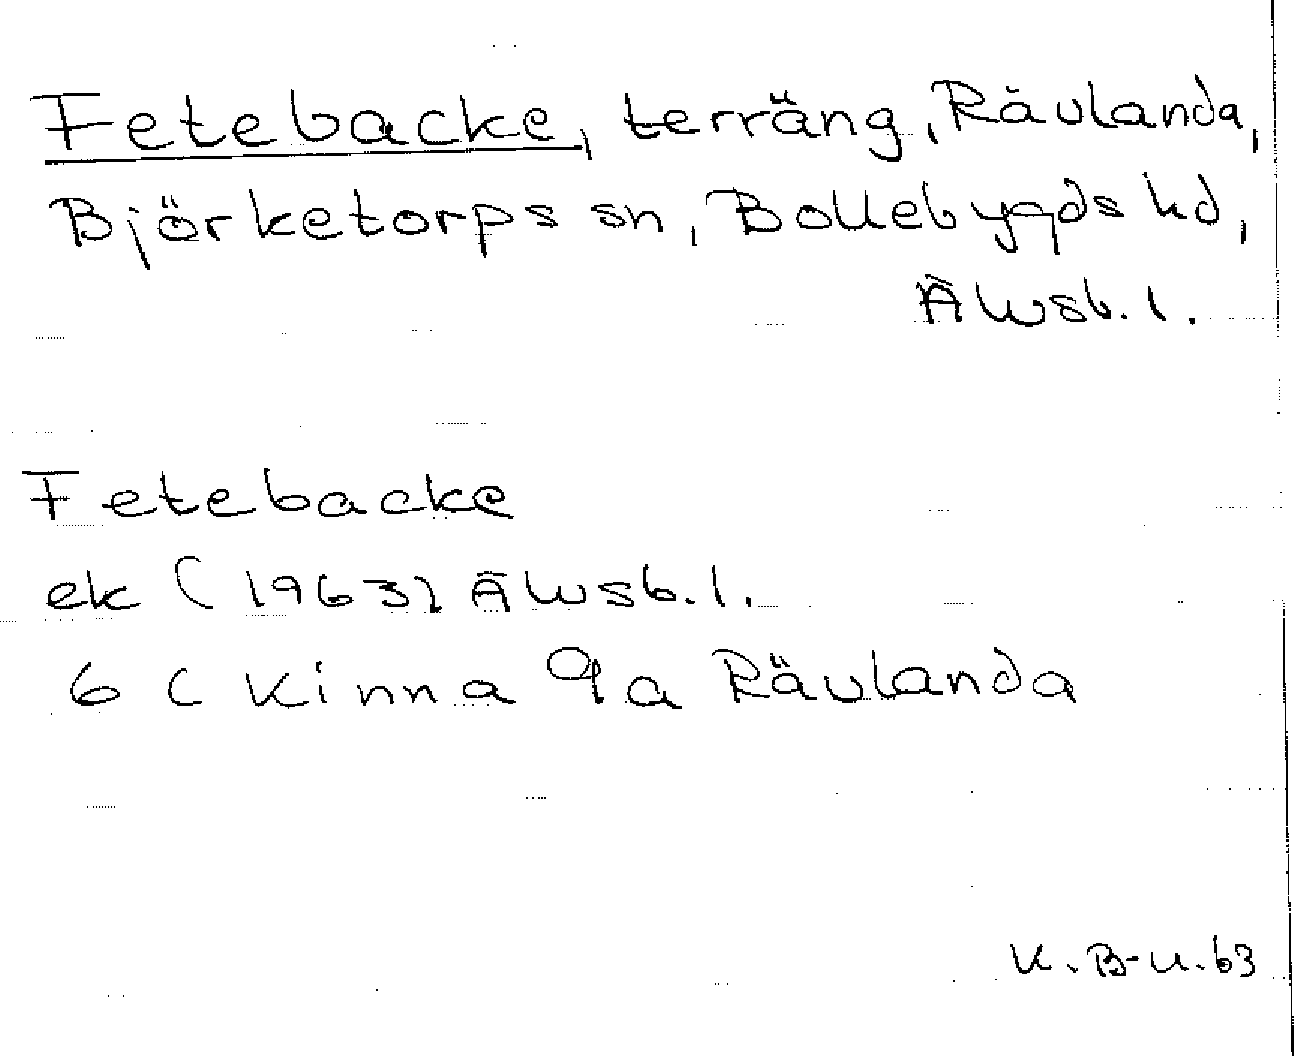 Fetebacke, terräng, Rävlanda,
Björketorps sn, Bollebygds hd,
Älvsb. l.
Fetebacke
ek (1963) Älvsb. l.
6 C Kinna 9a Rävlanda
K. B-u. 63